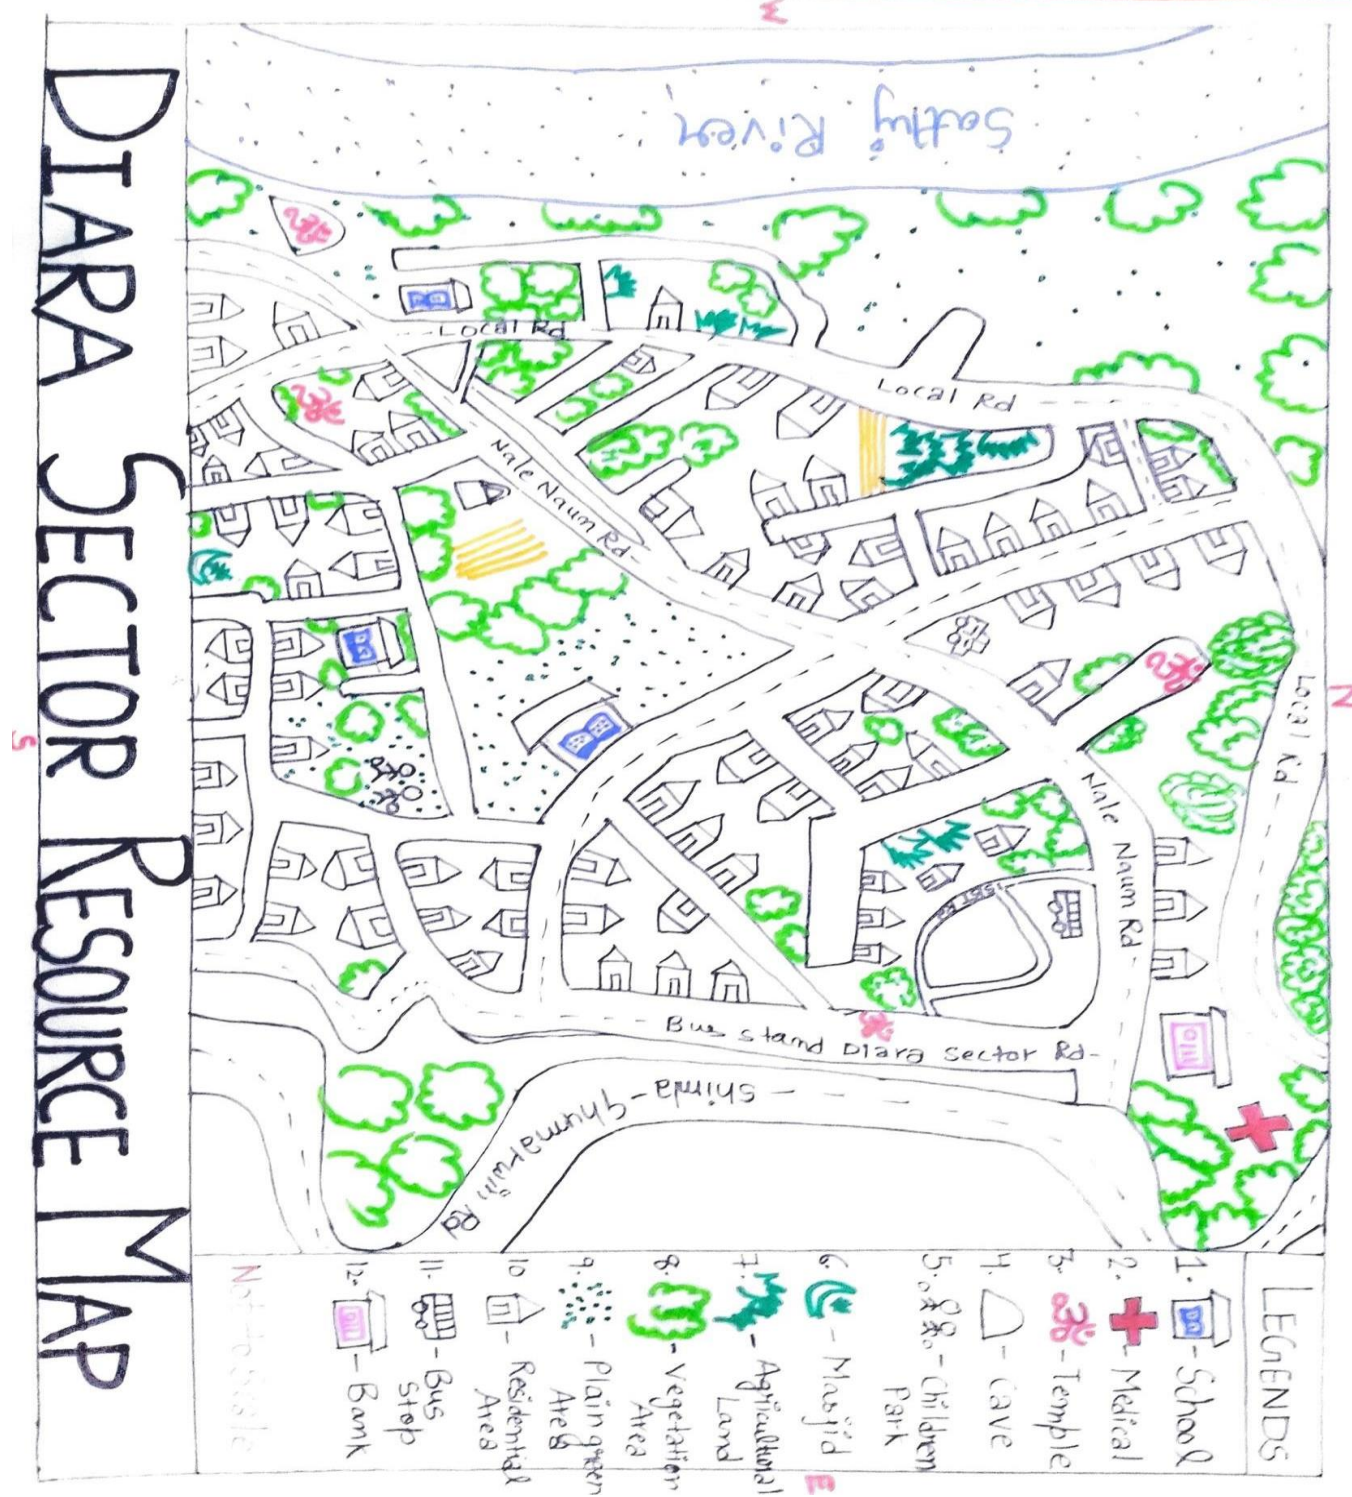 DIARA SECTOR RESOURCE MAP
W
N
S
E
Satluj River
Local Rd
Local Rd
Local Rd
Nale Naum Rd
Nale Naum Rd
Bus stand Diara Sector Rd
Shimla-Ghumarwin Rd
LEGENDS
1. - School
2. - Medical
3. - Temple
4. - Cave
5. - Children
Park
6. - Masjid
7. - Agricultural
Land
8. - Vegetation
Area
9. - Plain green
Area
10 - Residential
Area
11. - Bus
Stop
12. - Bank
Not to Scale